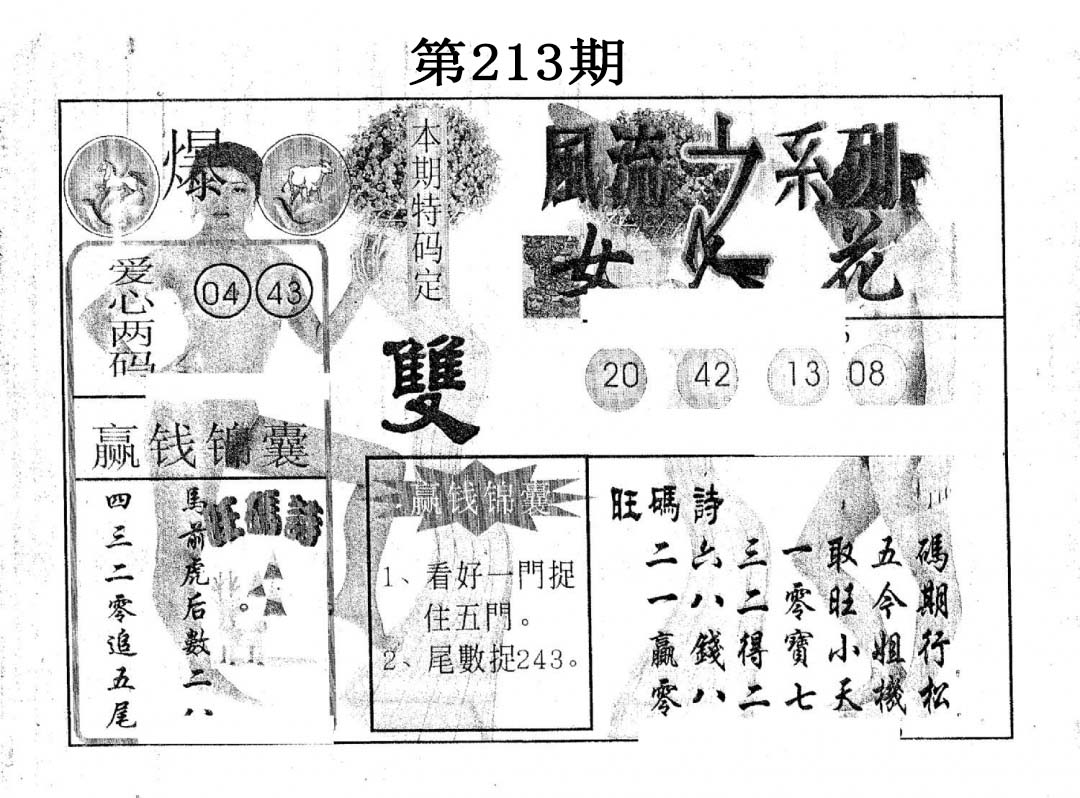 第213期
爆
本期特码定
雙
風流之系列
女人花
爱心两码
04 43
20 42 13 08
赢钱锦囊
旺碼詩
馬前虎后數二八
四三二零追五尾
赢钱锦囊
1、看好一門捉
住五門。
2、尾數捉243。
旺碼詩
碼期行松
五令姐機
取旺小天
一零寶七
三二得二
六八錢八
二一贏零